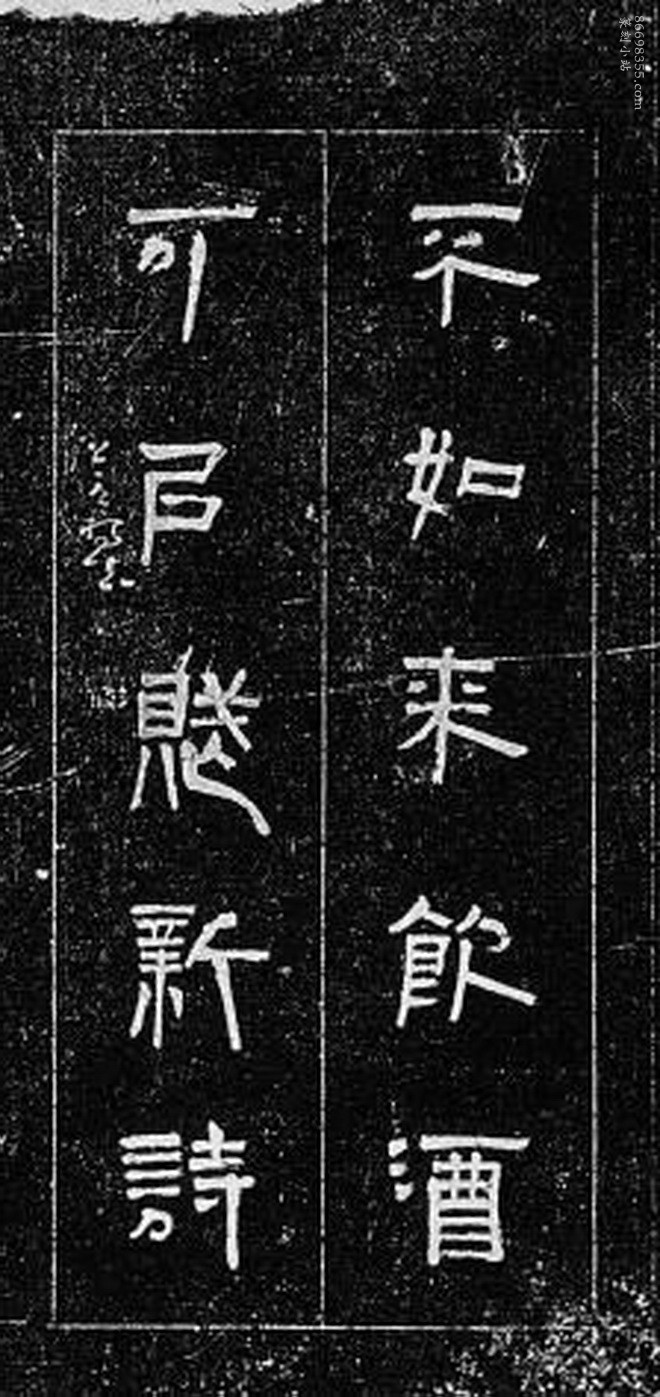 不如来飲酒
可㠯賦新詩
86698355.com
篆刻小站